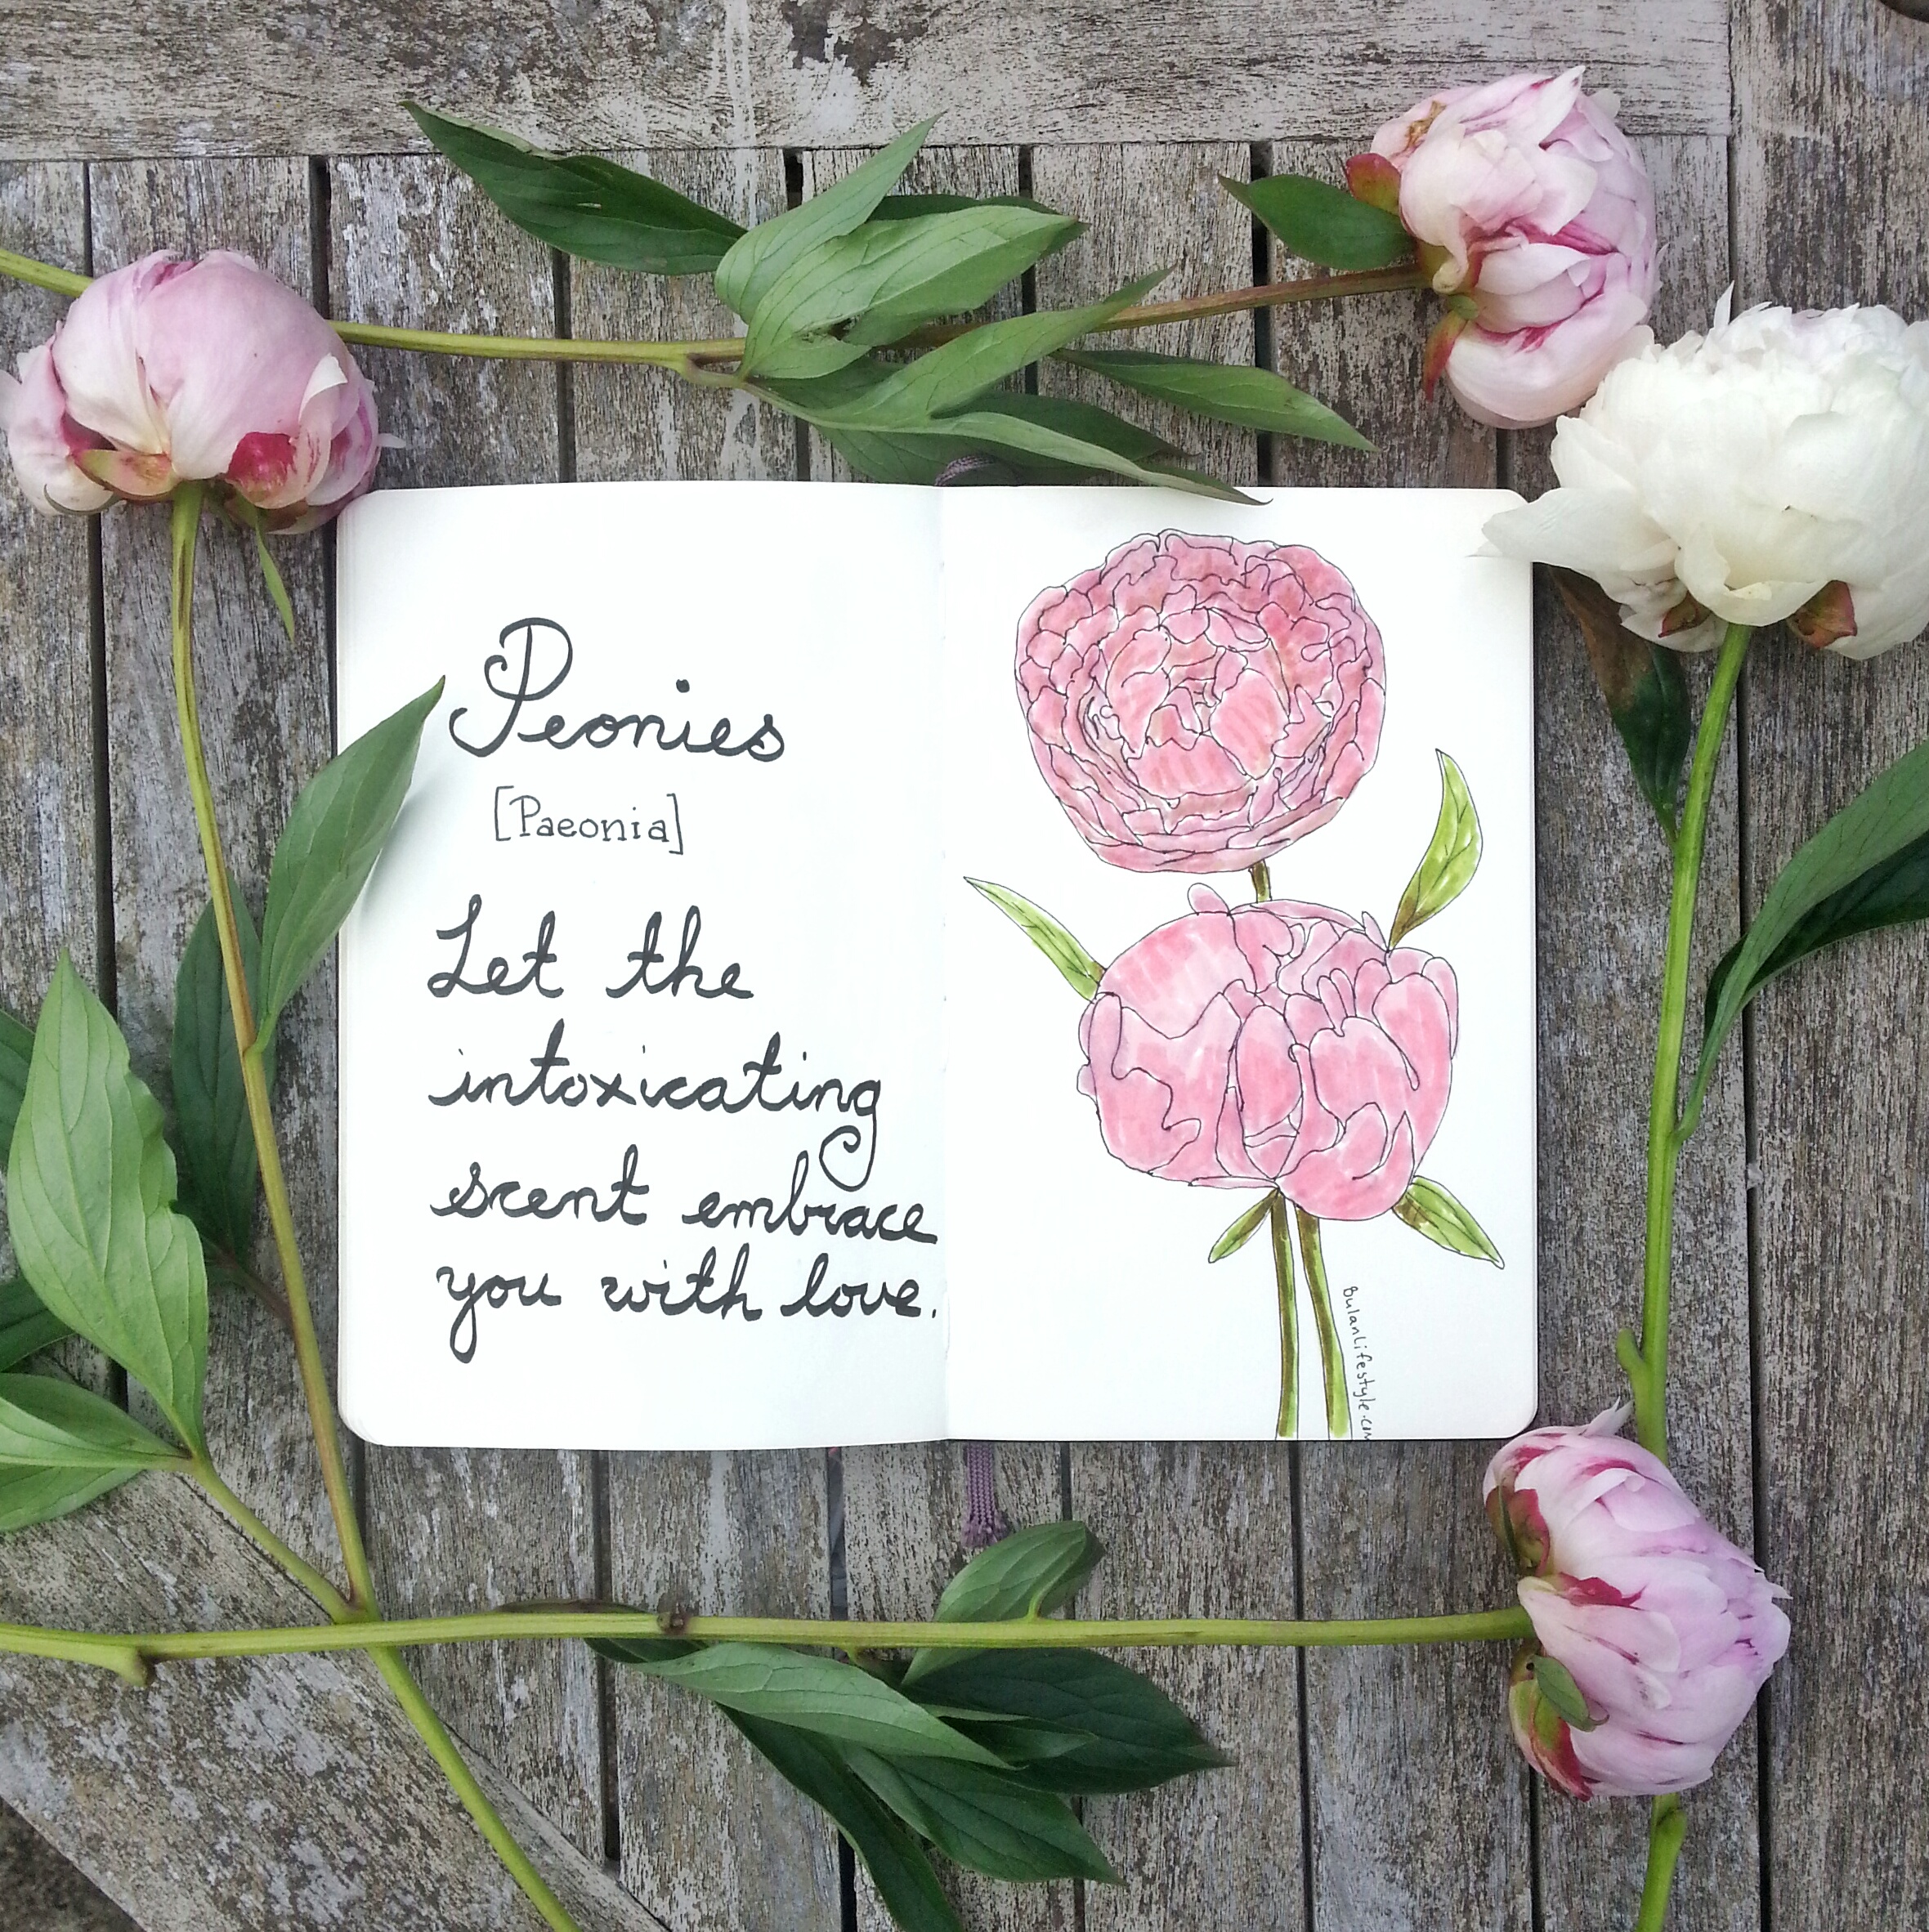 Peonies
[Paeonia]
Let the
intoxicating
scent embrace
you with love.
BulanLifestyle.com